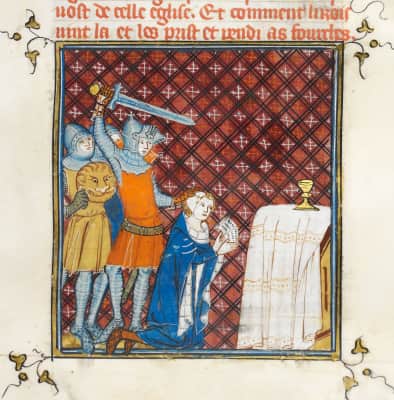 uost de celle eglise. Et comment li rois
uint la et les prist et pendi as fourches